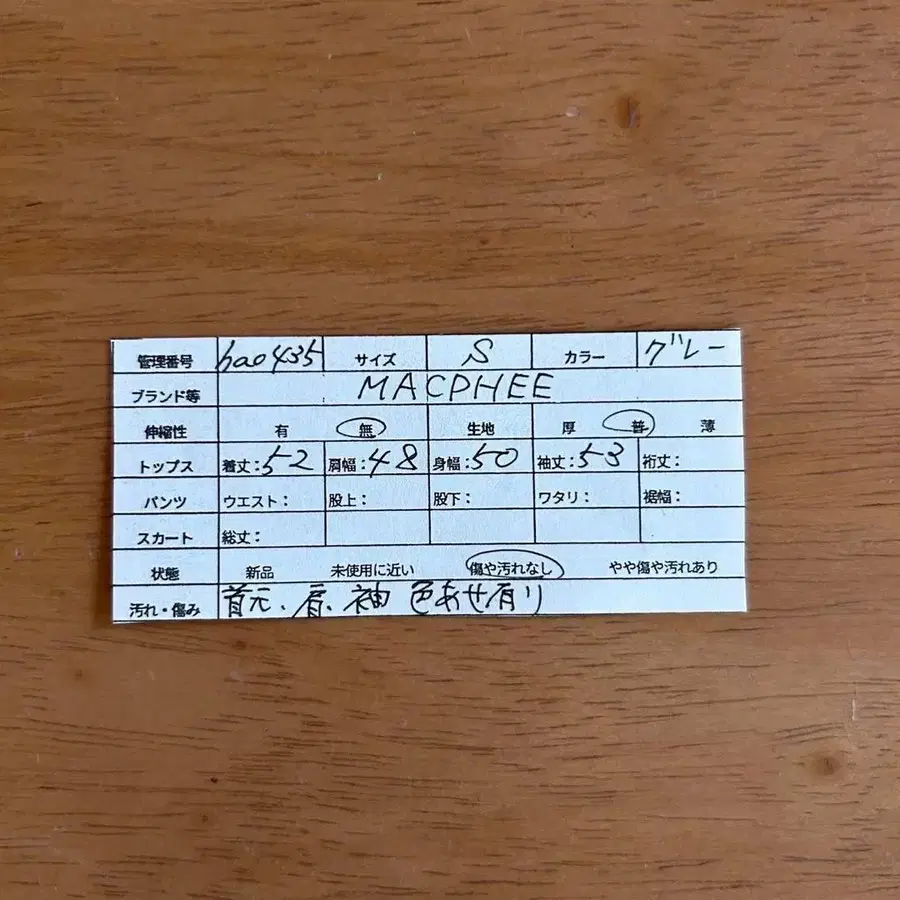 管理番号 hao435 サイズ S カラー グレー
ブランド等 MACPHEE
伸縮性 有 無 生地 厚 普 薄
トップス 着丈:52 肩幅:48 身幅:50 袖丈:53 裄丈:
パンツ ウエスト: 股上: 股下: ワタリ: 裾幅:
スカート 総丈:
状態 新品 未使用に近い 傷や汚れなし やや傷や汚れあり
汚れ・傷み 首元、肩、袖 色あせ有り